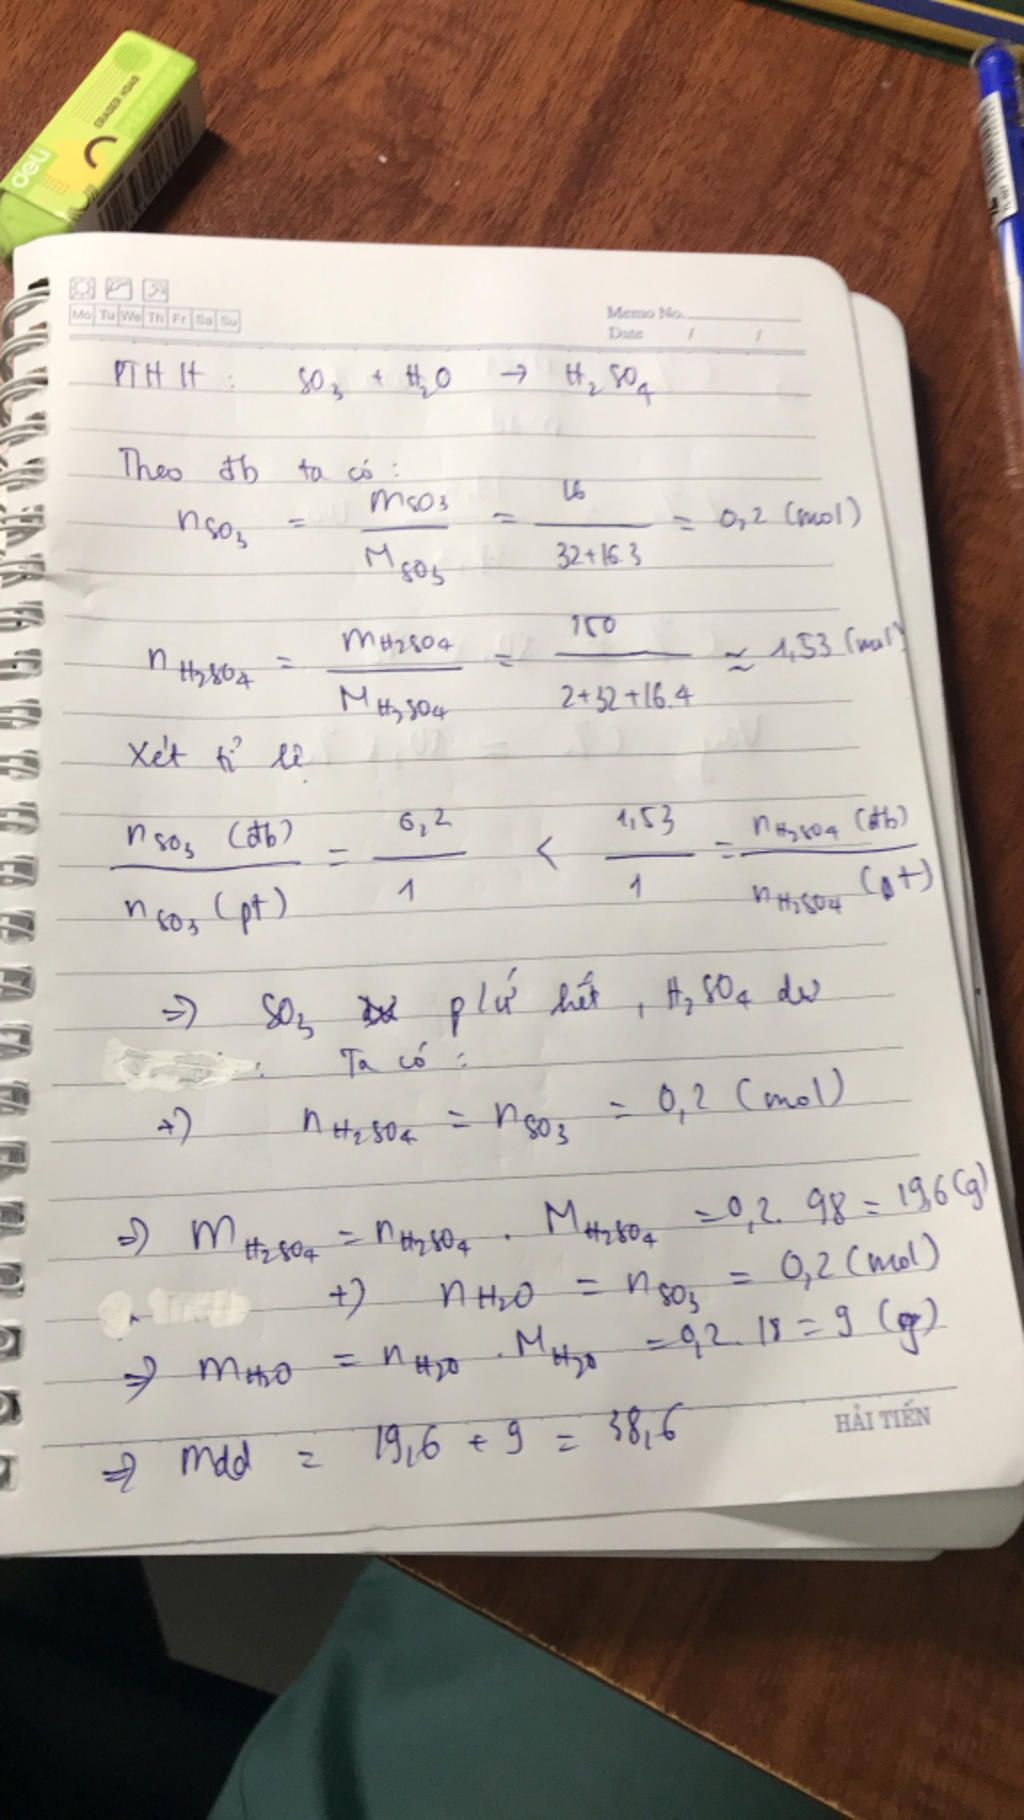 deli
ERASER H046
Mo Tu We Th Fr Sa Su
Memo No.
Date / /
PTHH : SO3 + H2O → H2SO4
Theo đb ta có :
nSO3 = mSO3 / MSO3 = 16 / 32+16.3 = 0,2 (mol)
nH2SO4 = mH2SO4 / MH2SO4 = 150 / 2+32+16.4 ≈ 1,53 (mol)
Xét tỉ lệ
nSO3 (đb) / nSO3 (pt) = 0,2 / 1 < 1,53 / 1 = nH2SO4 (đb) / nH2SO4 (pt)
=> SO3 p/ứ hết , H2SO4 dư
Ta có :
+) nH2SO4 = nSO3 = 0,2 (mol)
=> mH2SO4 = nH2SO4 . MH2SO4 = 0,2 . 98 = 19,6 (g)
+) nH2O = nSO3 = 0,2 (mol)
=> mH2O = nH2O . MH2O = 0,2 . 18 = 9 (g)
=> mdd = 19,6 + 9 = 38,6
HẢI TIẾN